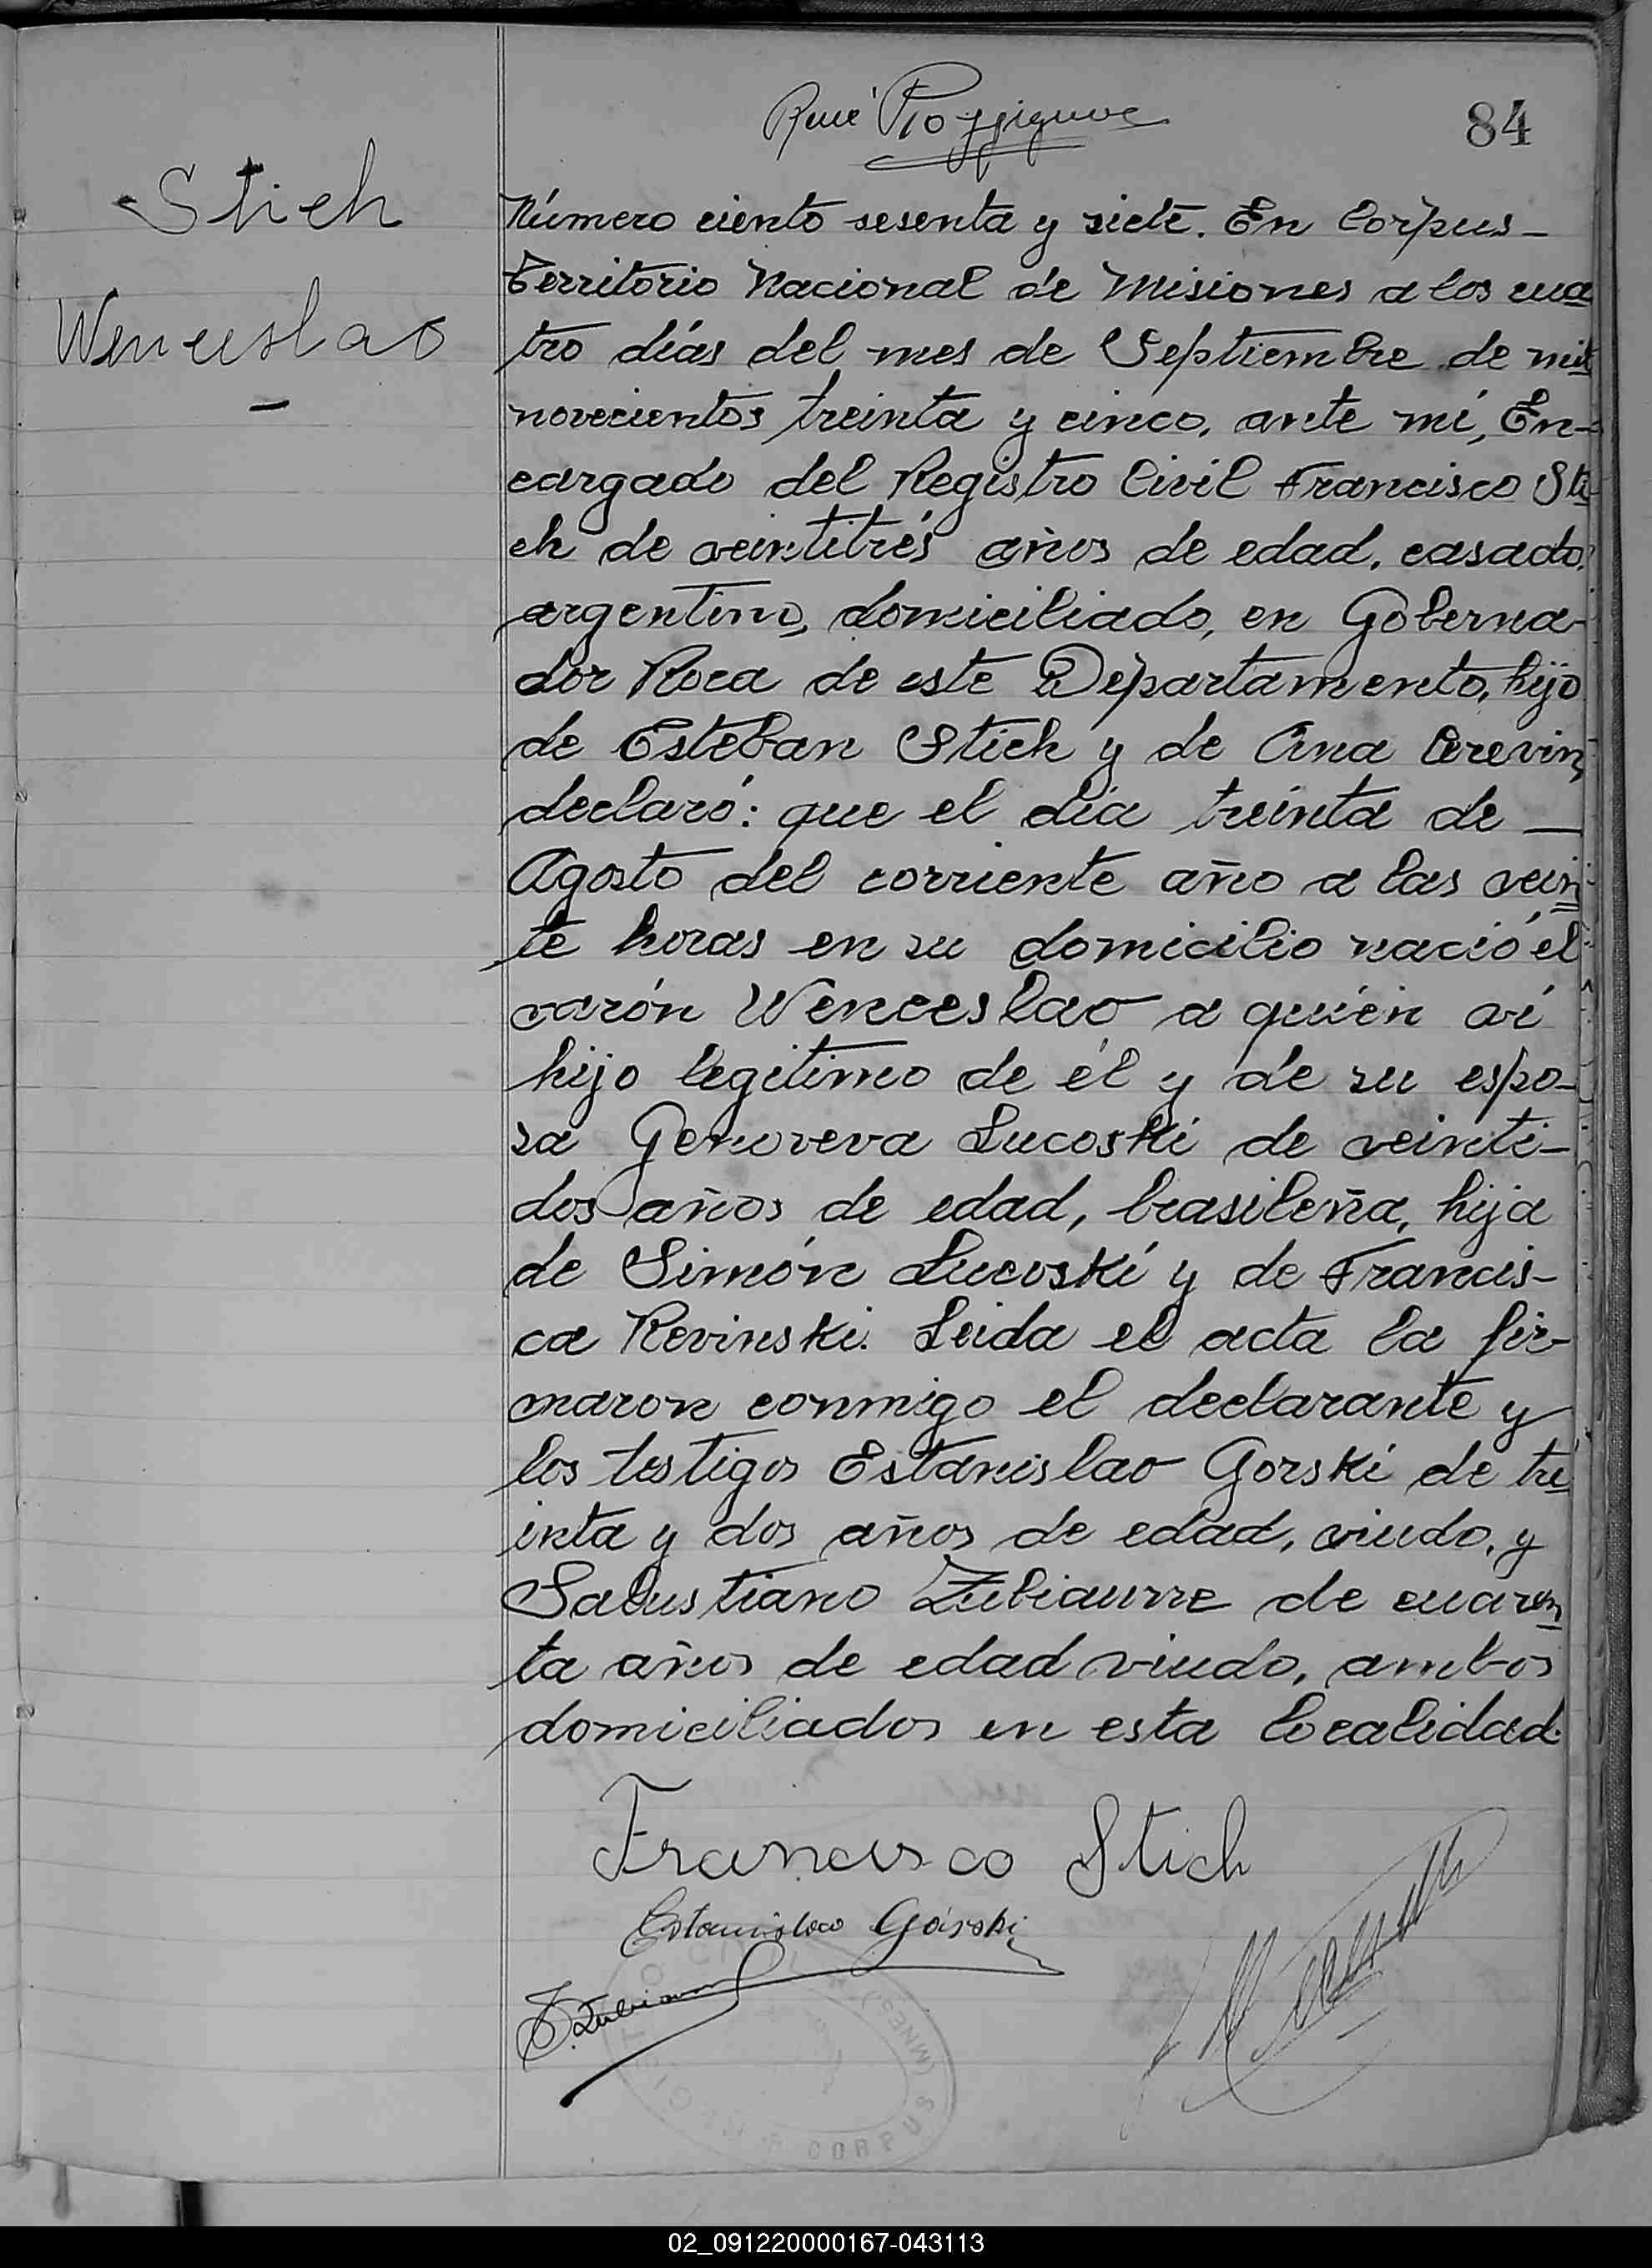 84
Stich
Wenceslao
Número ciento sesenta y siete. En Corpus-
Territorio Nacional de Misiones a los cua
tro días del mes de Septiembre de mil
novecientos treinta y cinco, ante mí, En-
cargado del Registro Civil Francisco Sti
ch de veintitrés años de edad, casado,
argentino, domiciliado, en Goberna-
dor Roca de este Departamento, hijo
de Esteban Stich y de Ana
declaró: que el día treinta de —
Agosto del corriente año a las vein
te horas en su domicilio nació el
varón Wenceslao a quién ví
hijo legitimo de él y de su espo-
sa Genoveva Lucoski de veinti-
dos años de edad, brasileña, hija
de Simón Lucoski y de Francis-
ca Revinski. Leida el acta la fir-
maron conmigo el declarante y
los testigos Estanislao Gorski de tre
inta y dos años de edad, viudo, y
Salustiano Zubiaurre de cuaren
ta años de edad viudo, ambos
domiciliados en esta localidad.
Francisco Stich
Estanislao Górski
CORPUS
02_091220000167-043113